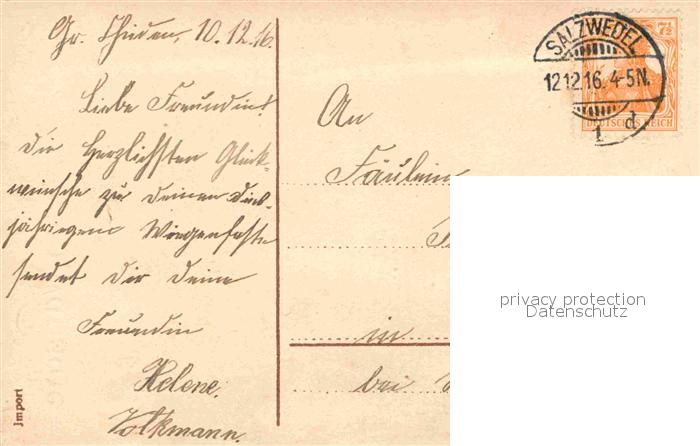 Gr. Chüden, 10.12.16.
Liebe Freundin!
Die Herzlichsten Glück-
wünsche zu deinem dies-
jährigem Wiegenfeste
sendet dir deine
Freundin
Helene
Volkmann.
An
Fäulein
in
bei
SALZWEDEL
12.12.16. 4-5N.
1 d
7½
DEUTSCHES REICH
Import
privacy protection
Datenschutz